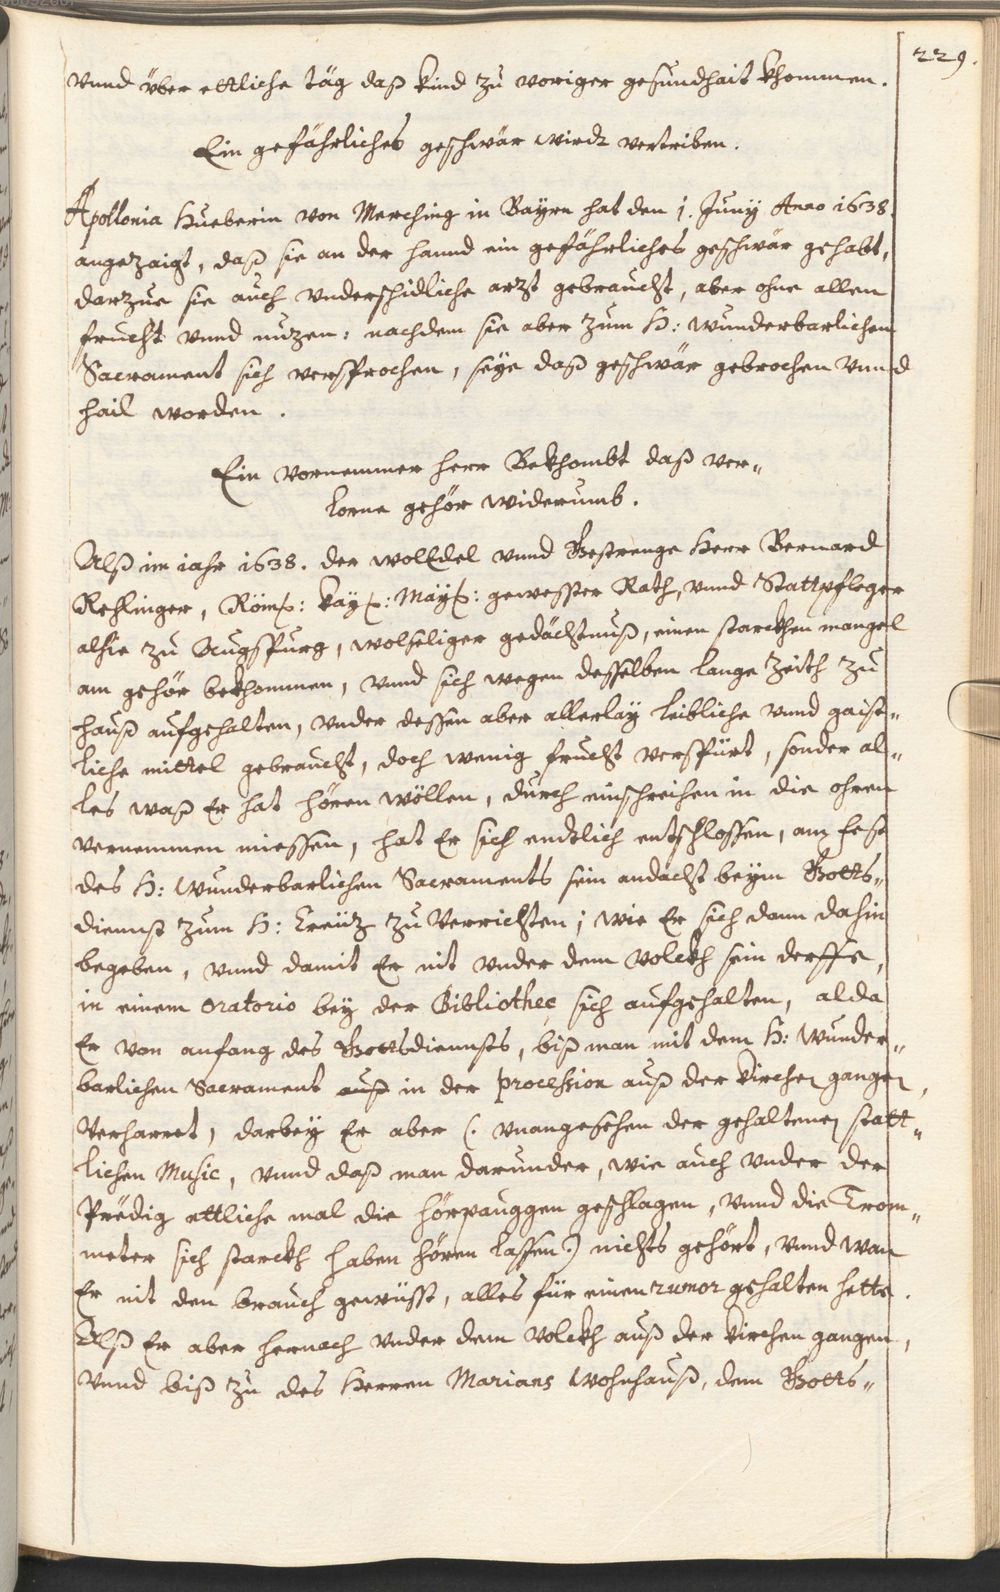 229.
vnnd yber ettliche täg daß kind zu voriger gesundhait khommen.
Ein gefährliches geschwär wirdt vertriben.
Apollonia Hueberin von Merching in Bayrn hat den 1. Juny Anno 1638.
angezaigt, daß sie an der hannd ein gefährliches geschwär gehabt,
darzue sie auch vnderschidliche arzt gebraucht, aber ohne allen
frucht vnnd nuzen: nachdem sie aber zum H: wunderbarlichen
Sacrament sich versprochen, seye daß geschwär gebrochen vnnd
hail worden.
Ein vornemmer herr Bekhombt daß ver„
lorne gehör widerumb.
Alß im iahr 1638. der wolEdel vnnd Gestrenge Herr Bernard
Rehlinger, Röm: Kay: May: gewesster Rath, vnnd Stattpfleger
alhie zu Augspurg, wolseliger gedächtnuß, einen starckhen mangel
am gehör bekhommen, vnnd sich wegen desselben lange Zeith zu
hauß aufgehalten, vnder dessen aber allerlay leibliche vnnd gaist„
liche mittel gebraucht, doch wenig frucht verspürt, sonder al„
les waß Er hat hören wöllen, durch einschreihen in die ohren
vernemmen miessen, hat Er sich endtlich entschlossen, am fest
des H: Wunderbarlichen Sacraments sein andacht beym Gotts„
diennst zum H: Creütz zu Verrichten; wie Er sich dann dahin
begeben, vnnd damit Er nit vnder dem volckh sein derffe,
in einem oratorio bey der Bibliothec sich aufgehalten, alda
Er von anfang des Gottsdiennsts, biß man mit dem H: Wunder„
barlichen Sacrament auß in der procession auß der kirchen gangen,
Verharret, darbey Er aber (: vnangesehen der gehaltenen statt„
lichen Music, vnnd daß man darunder, wie auch vnder der
Prëdig ettliche mal die hörpauggen geschlagen, vnnd die Trom„
meter sich starckh haben hören lassen:) nichts gehört, vnnd wan
Er nit den brauch gewüsst, alles für einen rumor gehalten hette.
Alß Er aber hernach vnder dem Volckh auß der kirchen gangen,
vnnd biß zu des Herren Marians Wohnhauß, dem Gotts„